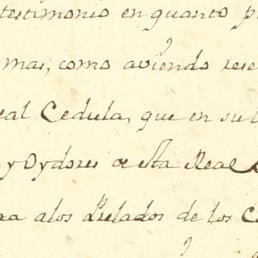 testimonio en quanto p
mas, como aviendo rese
eal Cedula, que en su
y Oydores de esta Real
ra a los Prelados de los C